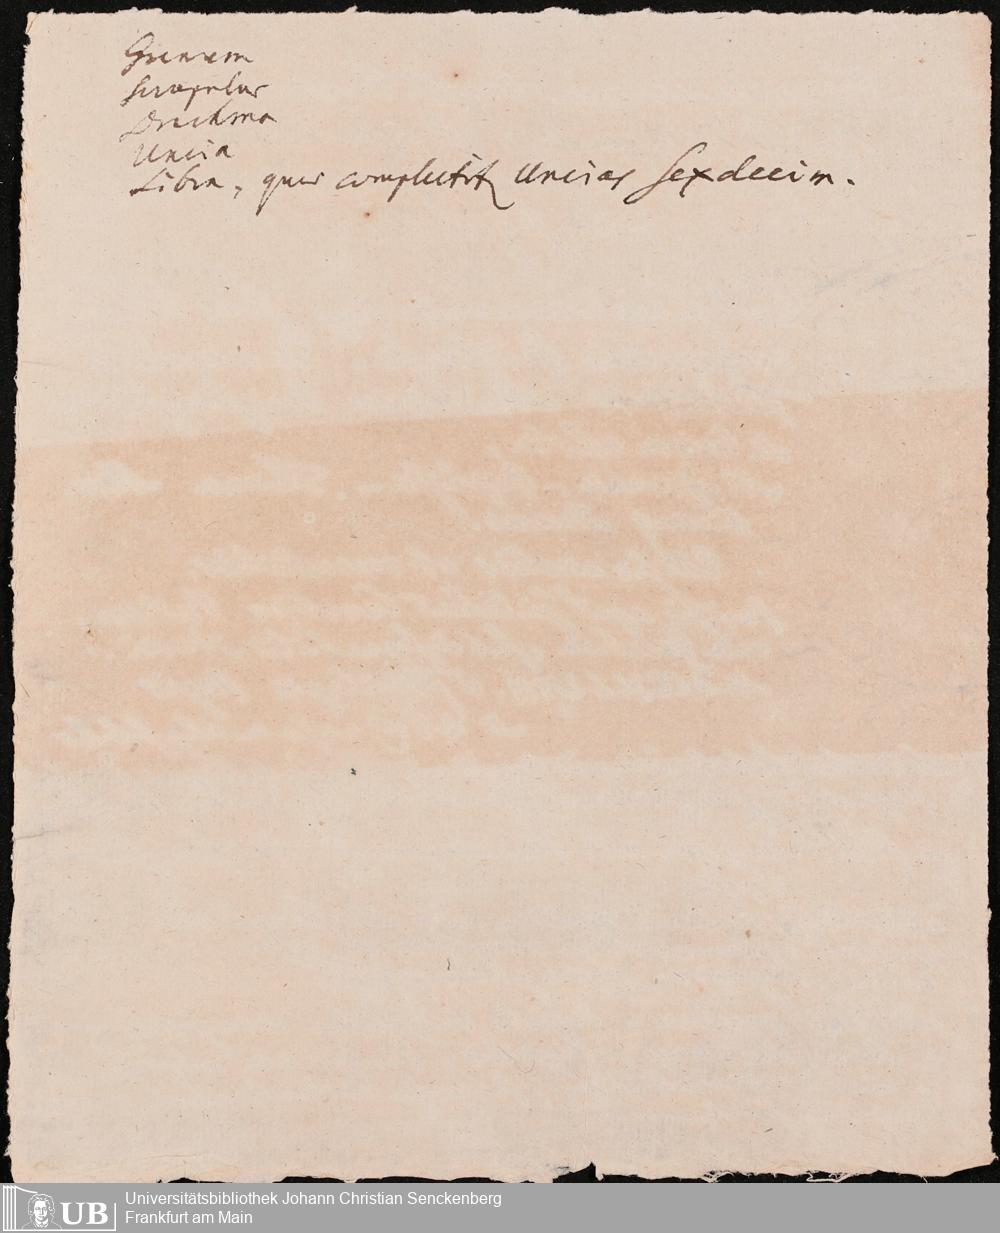 Granum
Scrupulus
Drachma
Uncia
Libra, quae complectitur Uncias Sexdecim.
UB
Universitätsbibliothek Johann Christian Senckenberg
Frankfurt am Main